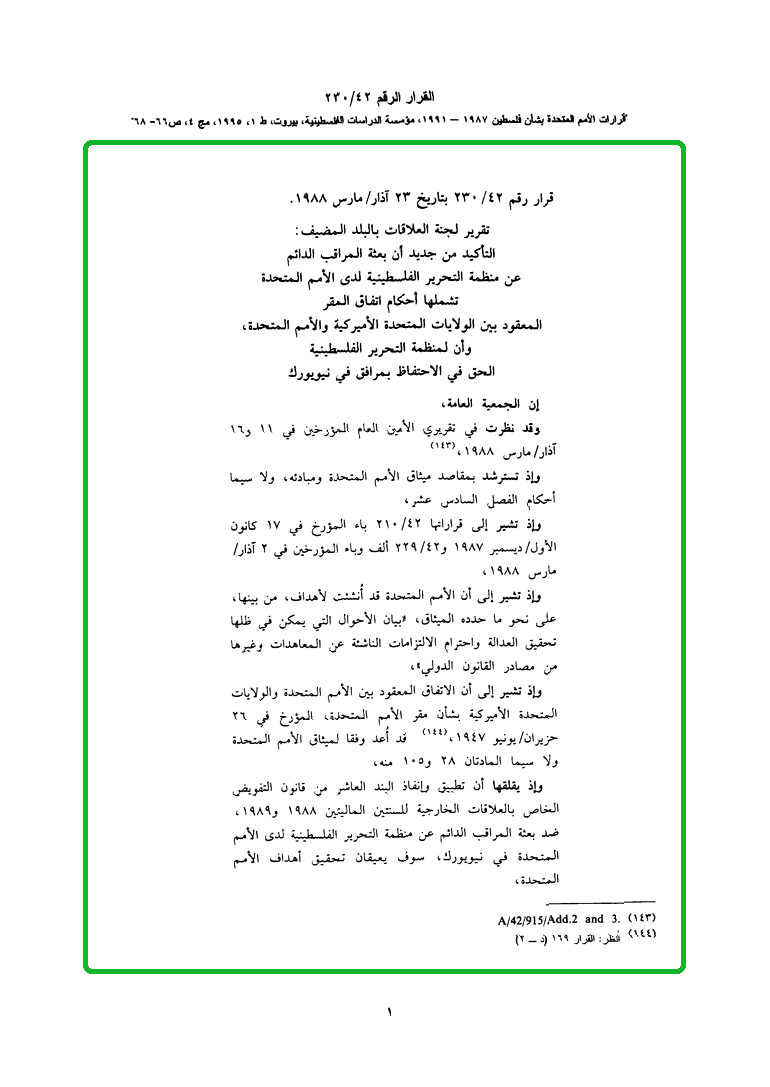 القرار الرقم ٢٣٠/٤٢
"قرارات الأمم المتحدة بشأن فلسطين ١٩٨٧ – ١٩٩١، مؤسسة الدراسات الفلسطينية، بيروت، ط ١، ١٩٩٥، مج ٤، ص٦٦- ٦٨"
قرار رقم ٢٣٠/٤٢ بتاريخ ٢٣ آذار/مارس ١٩٨٨.
تقرير لجنة العلاقات بالبلد المضيف:
التأكيد من جديد أن بعثة المراقب الدائم
عن منظمة التحرير الفلسطينية لدى الأمم المتحدة
تشملها أحكام اتفاق المقر
المعقود بين الولايات المتحدة الأميركية والأمم المتحدة،
وأن لمنظمة التحرير الفلسطينية
الحق في الاحتفاظ بمرافق في نيويورك
إن الجمعية العامة،
وقد نظرت في تقريري الأمين العام المؤرخين في ١١ و١٦
آذار/مارس ١٩٨٨،(١٤٣)
وإذ تسترشد بمقاصد ميثاق الأمم المتحدة ومبادئه، ولا سيما
أحكام الفصل السادس عشر،
وإذ تشير إلى قراراتها ٢١٠/٤٢ باء المؤرخ في ١٧ كانون
الأول/ديسمبر ١٩٨٧ و٢٢٩/٤٢ ألف وباء المؤرخين في ٢ آذار/
مارس ١٩٨٨،
وإذ تشير إلى أن الأمم المتحدة قد أُنشئت لأهداف، من بينها،
على نحو ما حدده الميثاق، «بيان الأحوال التي يمكن في ظلها
تحقيق العدالة واحترام الالتزامات الناشئة عن المعاهدات وغيرها
من مصادر القانون الدولي»،
وإذ تشير إلى أن الاتفاق المعقود بين الأمم المتحدة والولايات
المتحدة الأميركية بشأن مقر الأمم المتحدة، المؤرخ في ٢٦
حزيران/يونيو ١٩٤٧،(١٤٤) قد أُعد وفقا لميثاق الأمم المتحدة
ولا سيما المادتان ٢٨ و١٠٥ منه،
وإذ يقلقها أن تطبيق وإنفاذ البند العاشر من قانون التفويض
الخاص بالعلاقات الخارجية للسنتين الماليتين ١٩٨٨ و١٩٨٩،
ضد بعثة المراقب الدائم عن منظمة التحرير الفلسطينية لدى الأمم
المتحدة في نيويورك، سوف يعيقان تحقيق أهداف الأمم
المتحدة،
(١٤٣) A/42/915/Add.2 and 3.
(١٤٤) أنظر: القرار ١٦٩ (د – ٢)
١